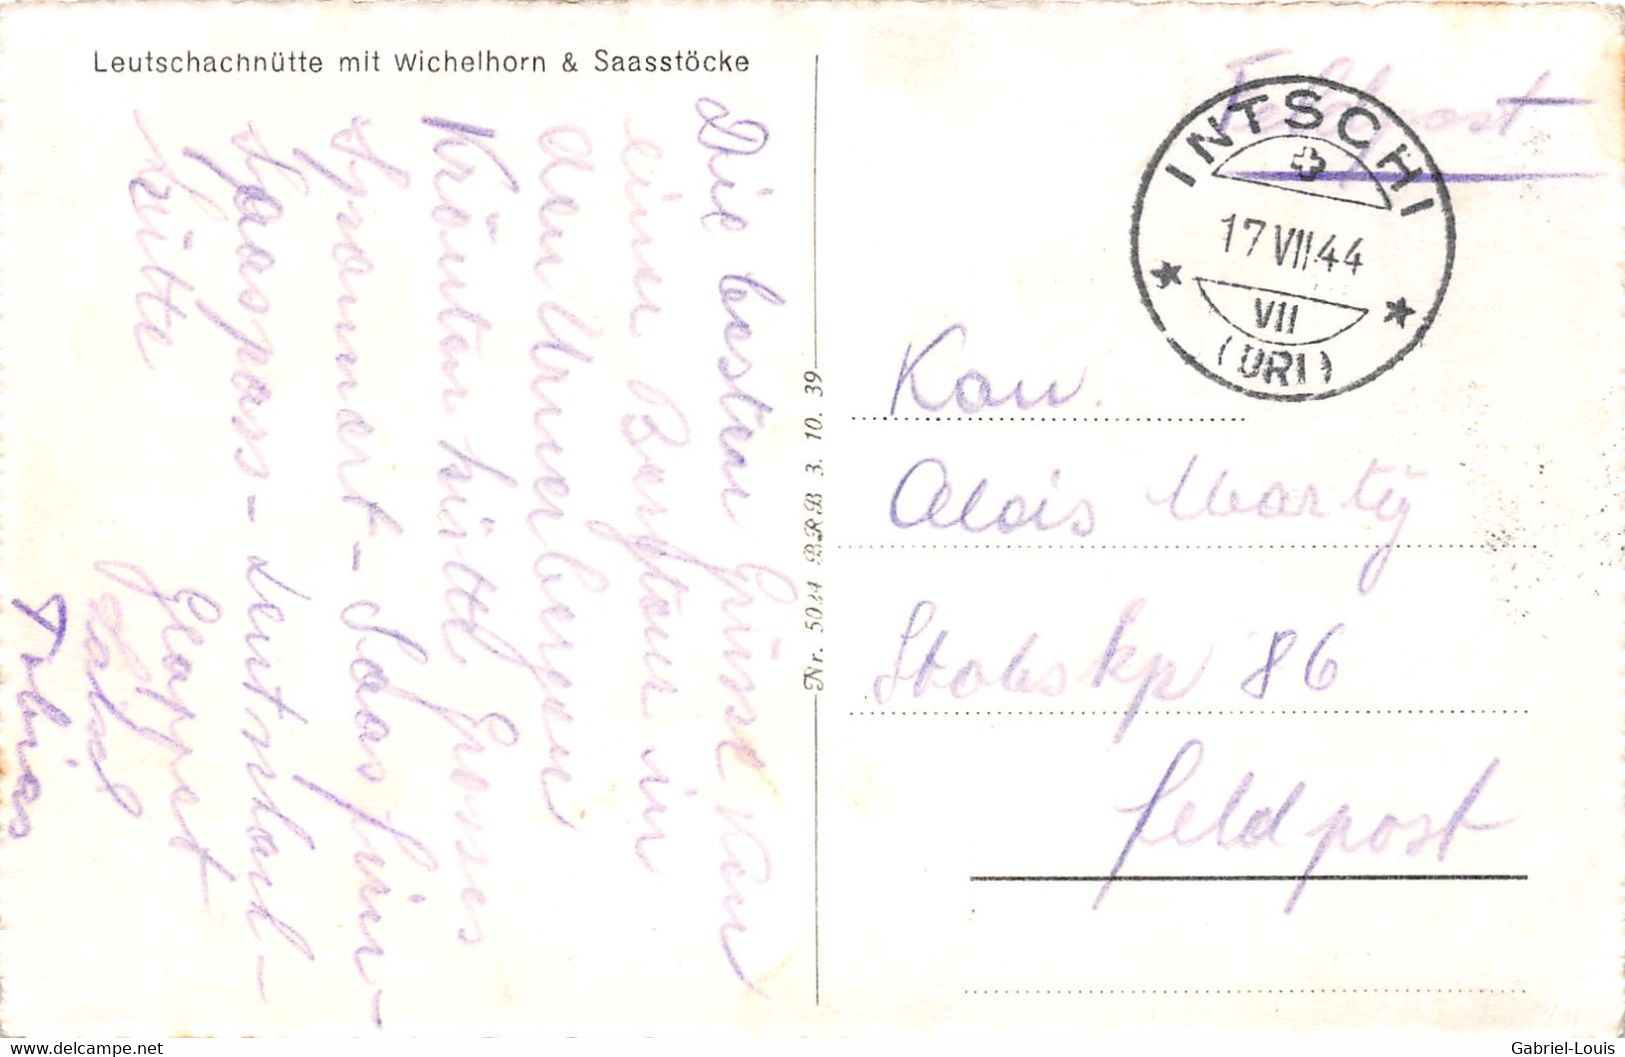 Leutschachnütte mit Wichelhorn & Saasstöcke
Die besten Grüsse von
einer Bergtour in
den Urnerbergen
Kröntenhütte Grosses
Spannort - Saasfirn -
Saaspass - Leutschach -
hütte
Tobias
Nr. 5044 BRB 3. 10. 39
Feldpost
INTSCHI
17 VII 44
VII
(URI)
Kan.
Alois Marty
Stabskp 86
Feldpost
www.delcampe.net
Gabriel-Louis